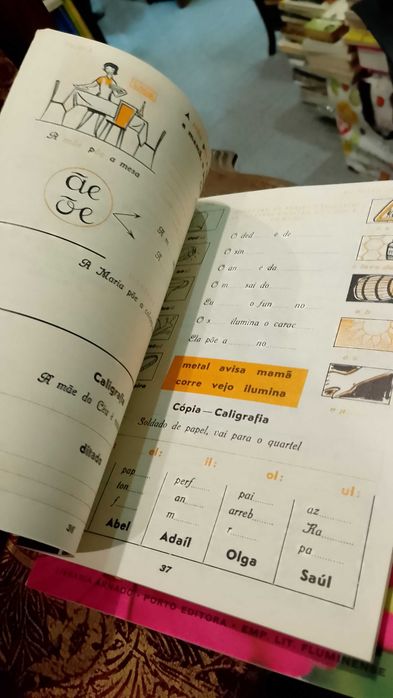 A mãe põe a mesa
ãe
õe
A Maria põe a
Caligrafia
A mãe da
ditado
36
O ded...... e de
O sin......
O an...... e da......
O m...... sai do......
Eu ...... o fun...... no......
O s...... ilumina o carac......
Ela põe a ...... no......
metal avisa mamã
corre vejo ilumina
Cópia — Caligrafia
Soldado de papel, vai para o quartel
el: il: ol: ul:
pap...... perf...... pai...... az......
ton...... an...... arreb...... Ra......
f...... m...... r...... pa......
Abel Adaíl Olga Saúl
37
PORTO EDITORA • EMP. LIT. FLUMINENSE